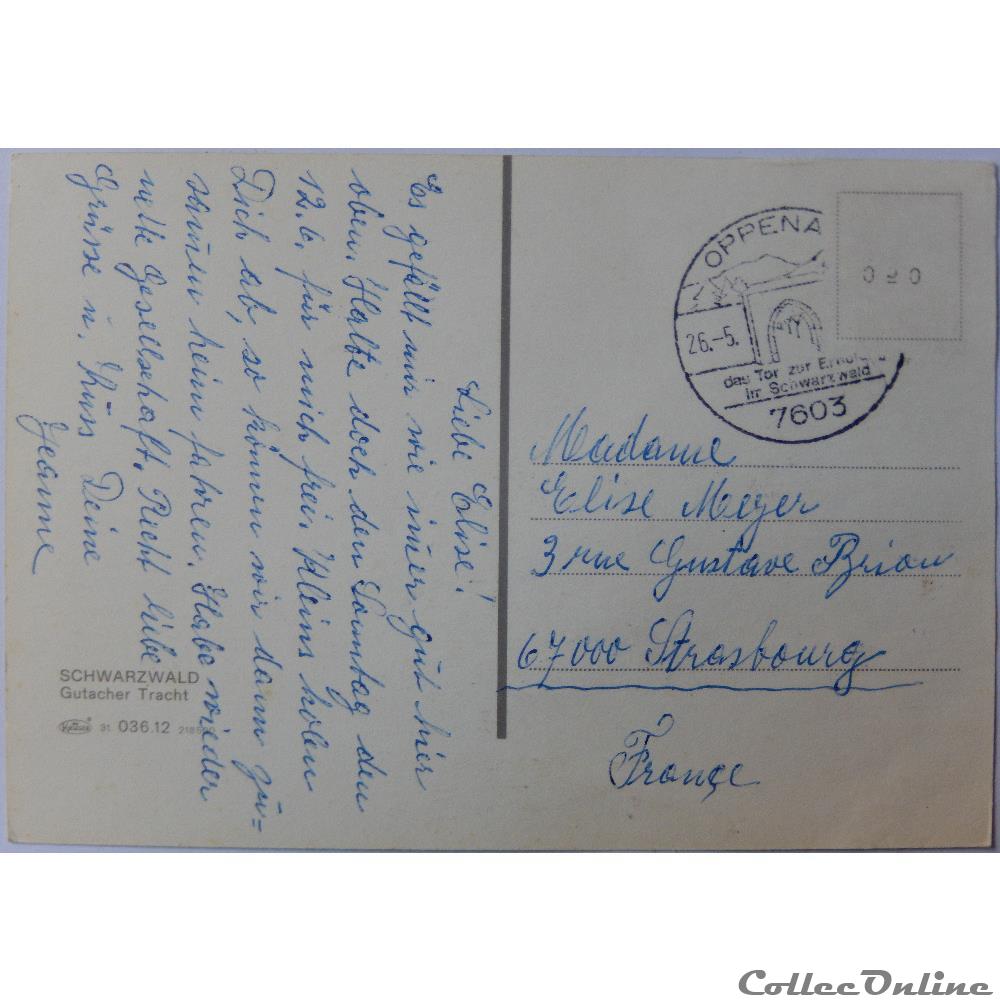 Liebe Elise!
Es gefällt mir wie im̄er gut hier
oben. Halte doch den Sonntag den
12.6. für mich frei. Kleins holen
Dich ab, so können wir dann zu-
sam̄en heim fahren. Habe wieder
nette Gesellschaft. Recht liebe
Grüsse u. Küss Deine
Jeanne
SCHWARZWALD
Gutacher Tracht
31 036.12
OPPENA
26.-5.
das Tor zur
im Schwarzwald
7603
020
Madame
Elise Meyer
3 rue Gustave Brion
67000 Strasbourg
France
CollecOnline